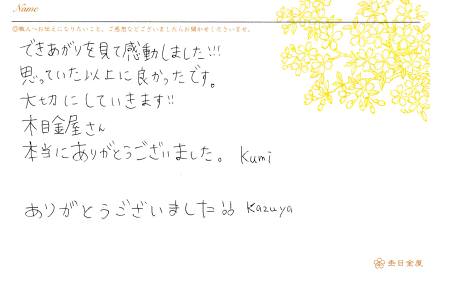 Name
◎職人へお伝えになりたいこと、ご感想などございましたらお聞かせくださいませ。
できあがりを見て感動しました!!!
思っていた以上に良かったです。
大切にしていきます!!
木目金屋さん
本当にありがとうございました。 Kumi
ありがとうございました!! Kazuya
杢目金屋